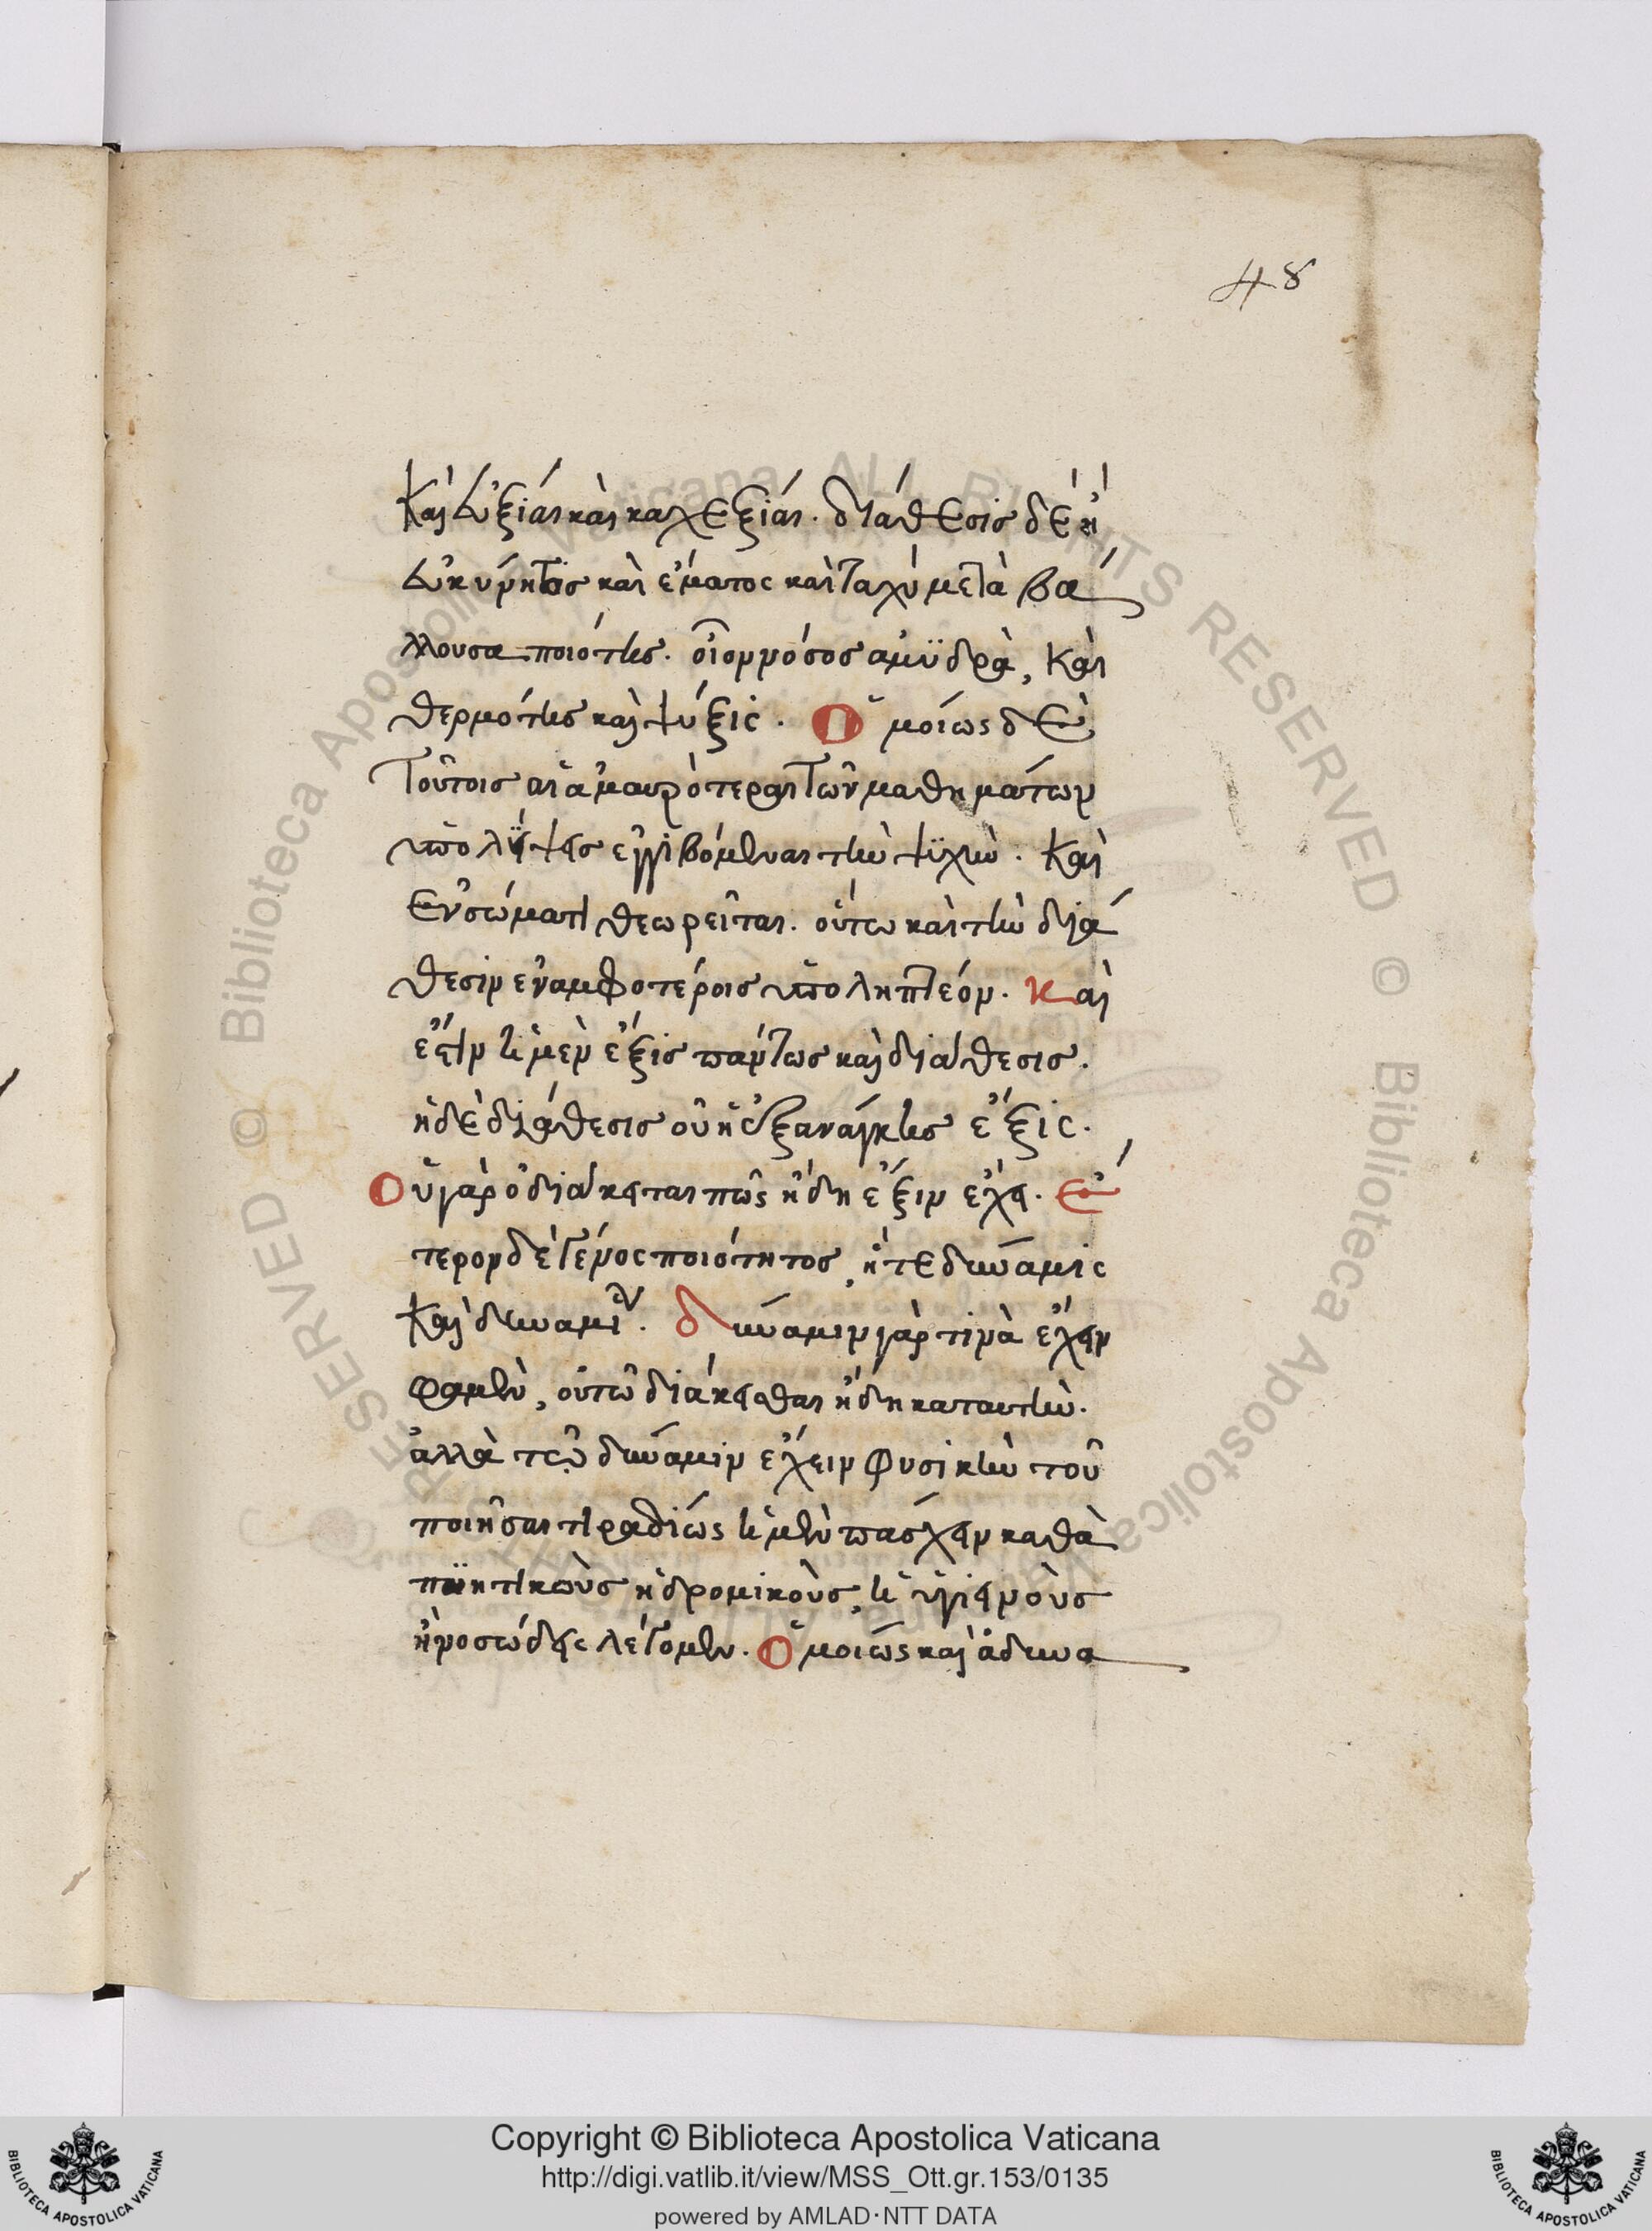 48
Καὶ εὐξίαν καὶ καχεξίαν. διάθεσις δὲ ἡ
εὐκίνητος καὶ ἔματος καὶ ταχὺ μεταβά
λλουσα ποιότης. οἷον νόσος ἀμϋδρὰ, καὶ
θερμότης καὶ ψύξις. Ὁμοίως δὲ
τούτοις αἱ ἀμαυρότεραι τῶν μαθημάτων
ὑπολήψεις ἐγγιβόμεναι τὴν ψϋχὴν. Καὶ
ἐν σώματι θεωρεῖται. οὕτω καὶ τὴν διά
θεσιν ἐν ἀμφοτέροις ὑποληπτέον. Καὶ
ἔστιν ἡ μὲν ἕξις πάντως καὶ διάθεσις.
ἡ δὲ διάθεσις οὐκ ἐξανάγκης ἕξις.
Οὐ γὰρ ὁ διάκειταί πως ἤδη ἕξιν ἔχει. ἕ
τερον δὲ γένος ποιότητος, ἥ τε δύναμις
Καὶ δυναμιν. δύναμιν γὰρ τινὰ ἔχειν
φαμὲν, οὕτω διάκεισθαι ἤδη κατ αυτὴν.
ἀλλὰ τῷ δύναμιν ἔχειν φυσικὴν τοῦ
ποιῆσαι τι ραδίως ἢ μὲν πάσχειν καθὰ
πϋκτικοὺς ἢ δρομικοὺς, ἢ ὑγιεινοὺς
ἢ νοσώδεις λέγομεν. Ὁμοίως καὶ ἀδυνα
Copyright © Biblioteca Apostolica Vaticana
http://digi.vatlib.it/view/MSS_Ott.gr.153/0135
powered by AMLAD·NTT DATA